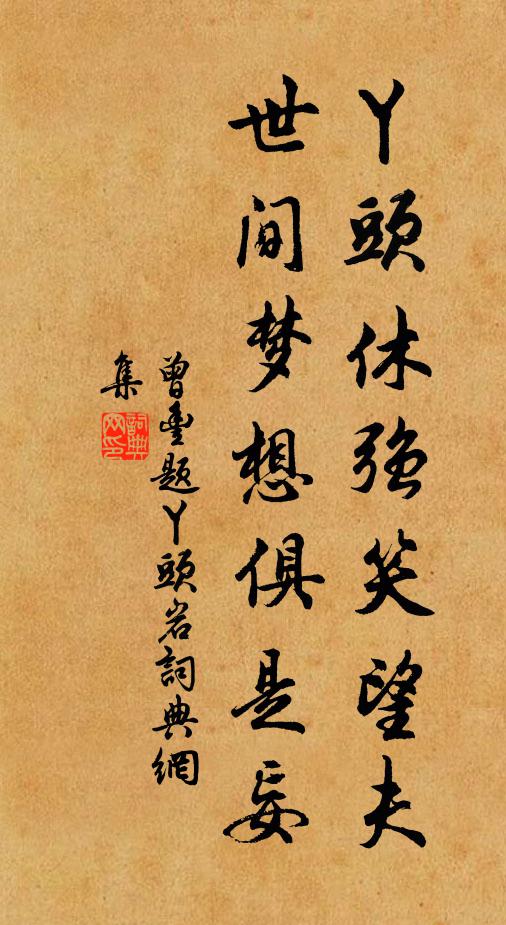 丫頭休強笑望夫
世间梦想俱是妄
曾豊题丫頭岩詞典網
集
詞典网印